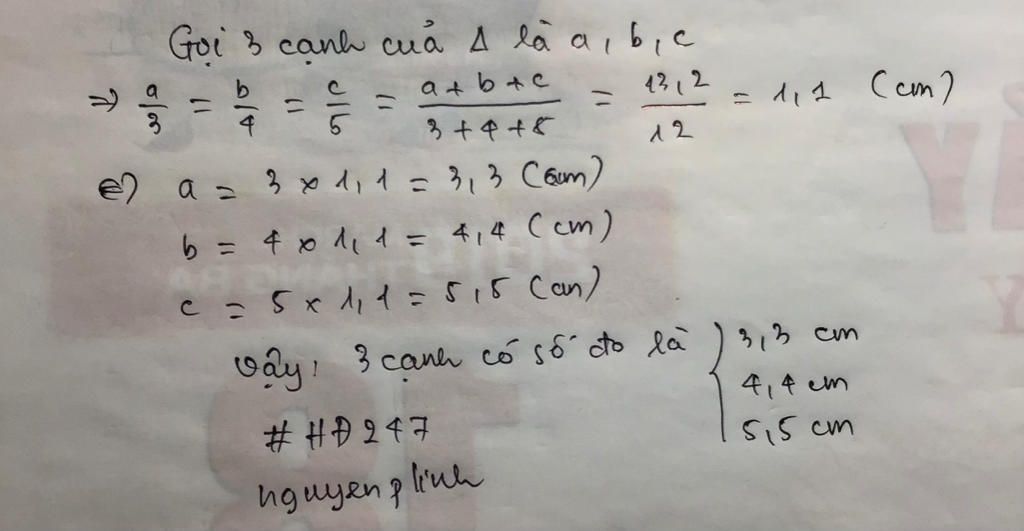 Gọi 3 cạnh của Δ là a, b, c
⇒ a/3 = b/4 = c/5 = a+b+c/3+4+5 = 13,2/12 = 1,1 (cm)
a = 3 x 1,1 = 3,3 (cm)
b = 4 x 1,1 = 4,4 (cm)
c = 5 x 1,1 = 5,5 (cm)
Vậy: 3 cạnh có số đo là { 3,3 cm
4,4 cm
5,5 cm
# HĐ247
nguyenplinh